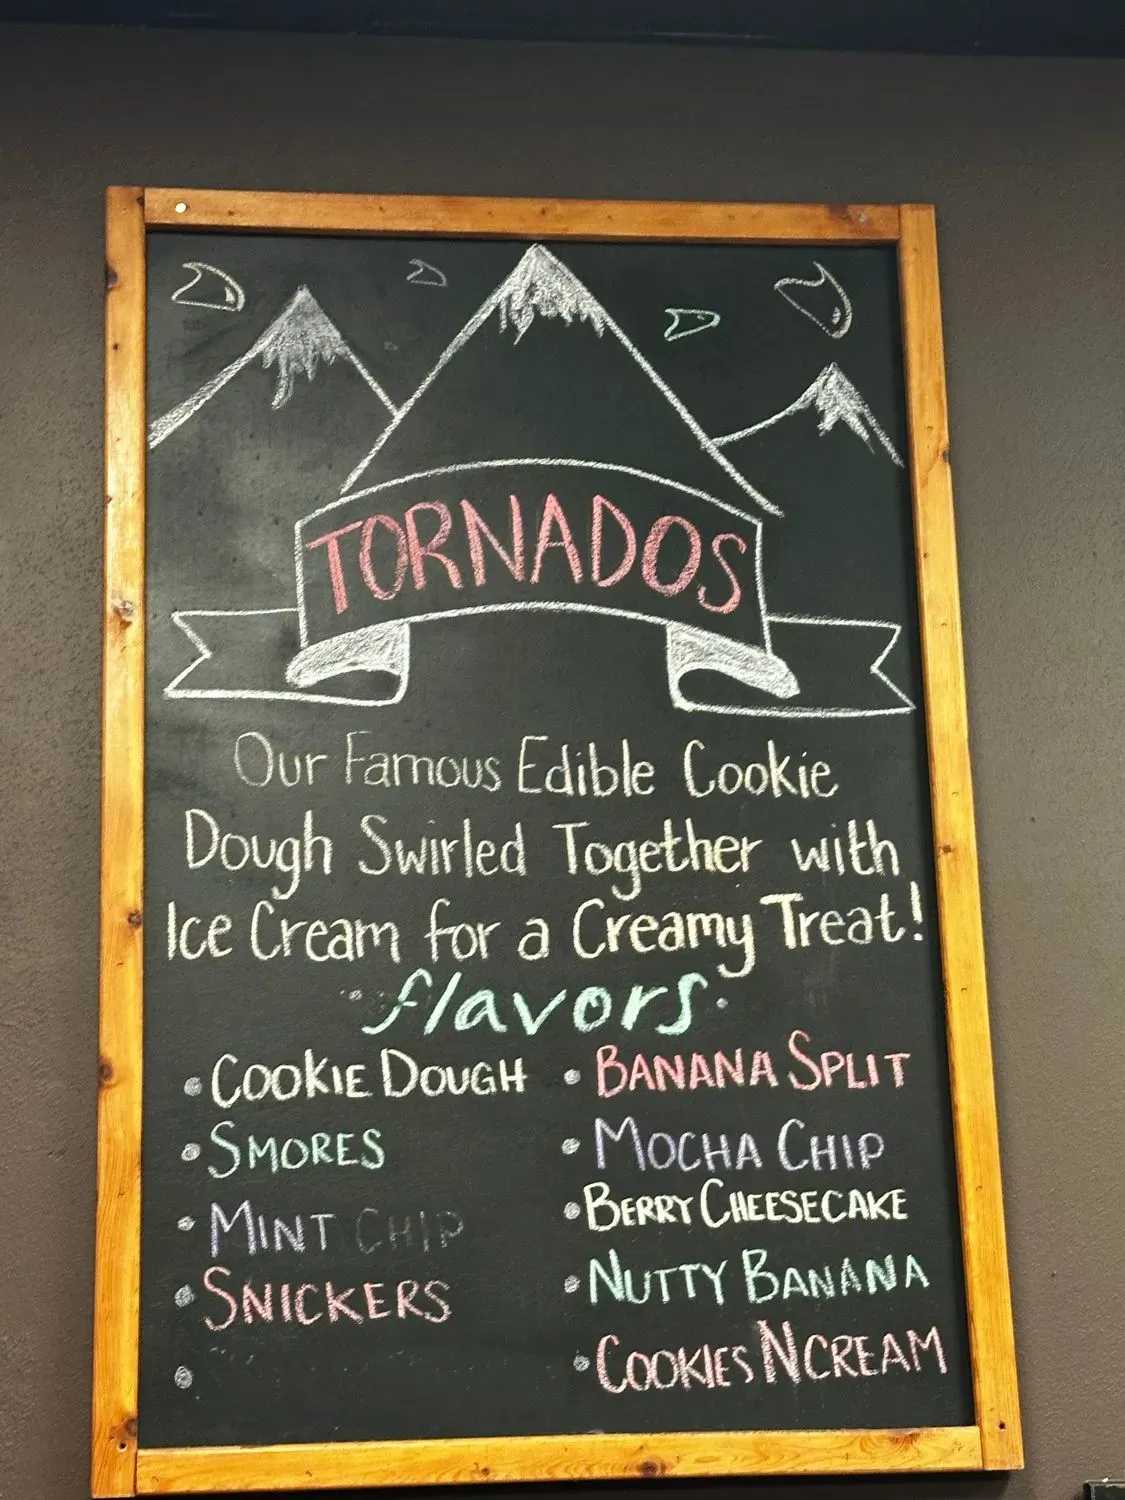 TORNADOS
Our Famous Edible Cookie
Dough Swirled Together with
Ice Cream for a Creamy Treat!
flavors
• COOKIE DOUGH
• SMORES
• MINT CHIP
• SNICKERS
•
• BANANA SPLIT
• MOCHA CHIP
• BERRY CHEESECAKE
• NUTTY BANANA
• COOKIES NCREAM